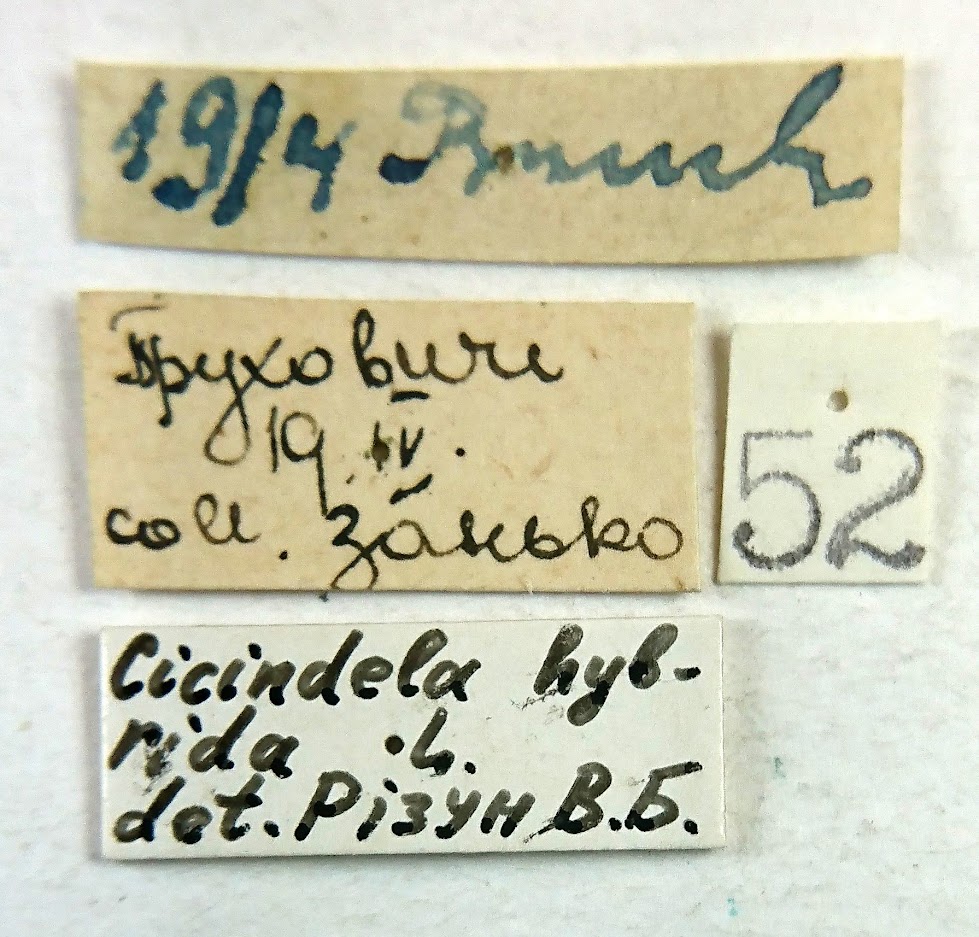 19/4
Бруховичи
19 IV.
coll. Занько
52
Cicindela hyb-
rida L.
det. Різун В.Б.